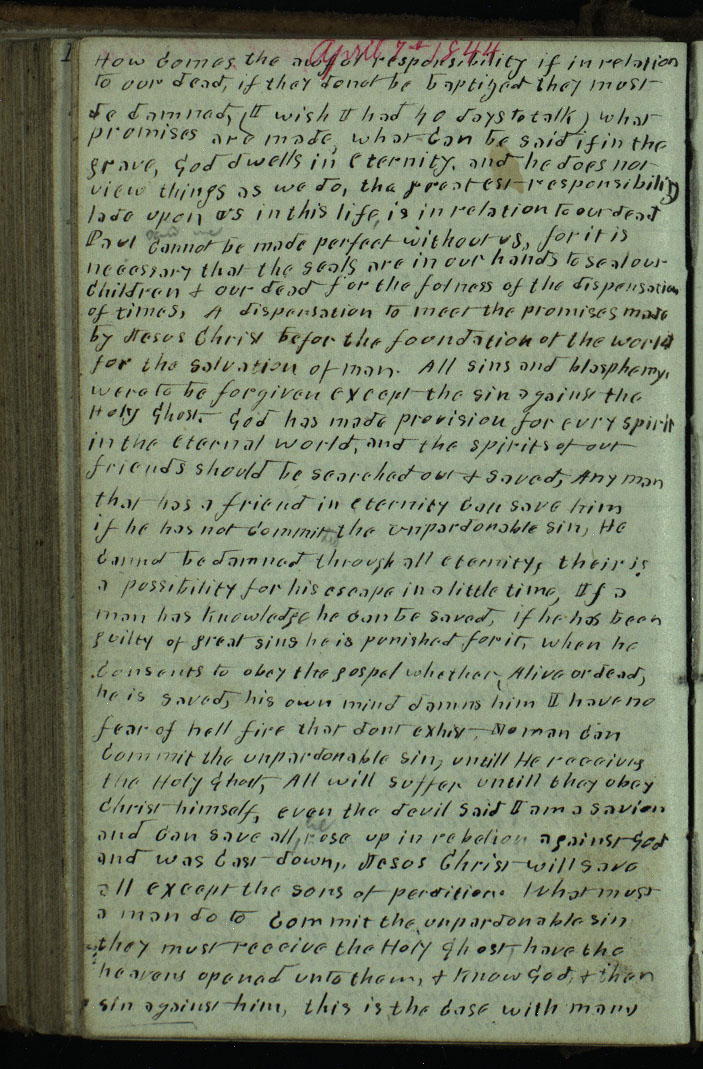 1
April 7th 1844
How Comes the awful responsibility if in relation
to our dead, if they do not be baptized they must
be damned, (I wish I had 40 days to talk) what
promises are made, what Can be said if in the
grave, God dwells in eternity, and he does not
view things as we do, the greatest responsibility
lade upon us in this life, is in relation to our dead
Paul said we Cannot be made perfect without us, for it is
necessary that the seals are in our hands to seal our
Children & our dead for the folness of the dispensation
of times, A dispensation to meet the promises made
by Jesus Christ befor the foundation of the world
for the salvation of man. All sins and blasphemy,
were to be forgiven except the sin against the
Holy Ghost. God has made provision for evry spirit
in the eternal world, and the spirits of our
friends should be searched out & saved, Any man
that has a friend in eternity Can save him
if he has not Commit the unpardonable sin, He
Cannot be damned through all eternity, their is
a possibility for his escape in a little time, If a
man has knowledge he Can be saved, if he has been
guilty of great sins he is punished for it, when he
Consents to obey the gospel whether Alive or dead,
he is saved, his own mind damns him I have no
fear of hell fire that dont exhist, No man Can
Commit the unpardonable sin, untill He receives
the Holy Ghost, All will suffer untill they obey
Christ himself, even the devil said I am a savior
and Can save all, he rose up in rebelion against God
and was Cast down, Jesus Christ will save
all except the sons of perdition. What must
a man do to Commit the unpardonable sin
they must receive the Holy Ghost, have the
heavens opened unto them, & know God, & then
sin against him, this is the Case with many